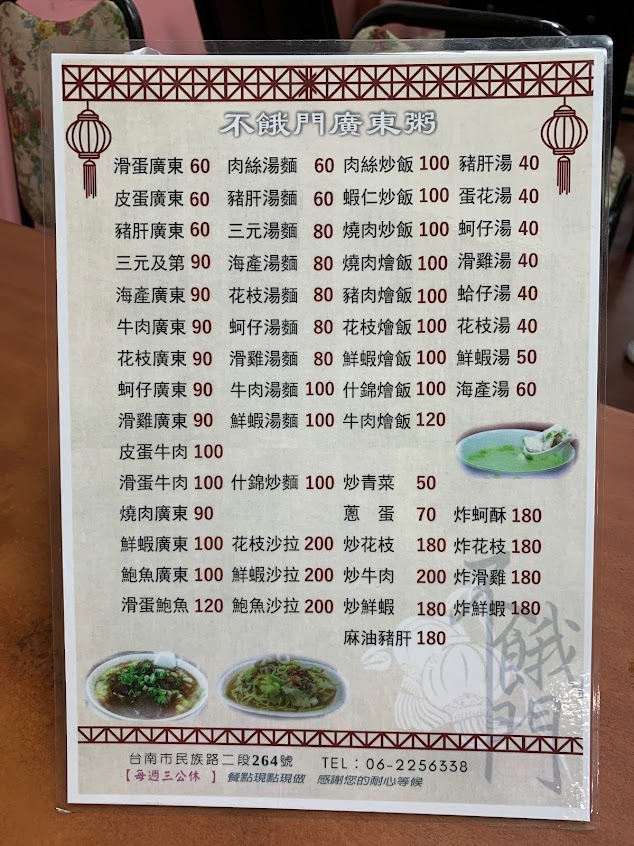 不餓門廣東粥
滑蛋廣東 60 肉絲湯麵 60 肉絲炒飯 100 豬肝湯 40
皮蛋廣東 60 豬肝湯麵 60 蝦仁炒飯 100 蛋花湯 40
豬肝廣東 60 三元湯麵 80 燒肉炒飯 100 蚵仔湯 40
三元及第 90 海產湯麵 80 燒肉燴飯 100 滑雞湯 40
海產廣東 90 花枝湯麵 80 豬肉燴飯 100 蛤仔湯 40
牛肉廣東 90 蚵仔湯麵 80 花枝燴飯 100 花枝湯 40
花枝廣東 90 滑雞湯麵 80 鮮蝦燴飯 100 鮮蝦湯 50
蚵仔廣東 90 牛肉湯麵 100 什錦燴飯 100 海產湯 60
滑雞廣東 90 鮮蝦湯麵 100 牛肉燴飯 120
皮蛋牛肉 100
滑蛋牛肉 100 什錦炒麵 100 炒青菜 50
燒肉廣東 90 蔥 蛋 70 炸蚵酥 180
鮮蝦廣東 100 花枝沙拉 200 炒花枝 180 炸花枝 180
鮑魚廣東 100 鮮蝦沙拉 200 炒牛肉 200 炸滑雞 180
滑蛋鮑魚 120 鮑魚沙拉 200 炒鮮蝦 180 炸鮮蝦 180
麻油豬肝 180
不餓門
台南市民族路二段264號 TEL：06-2256338
【每週三公休 】 餐點現點現做 感謝您的耐心等候